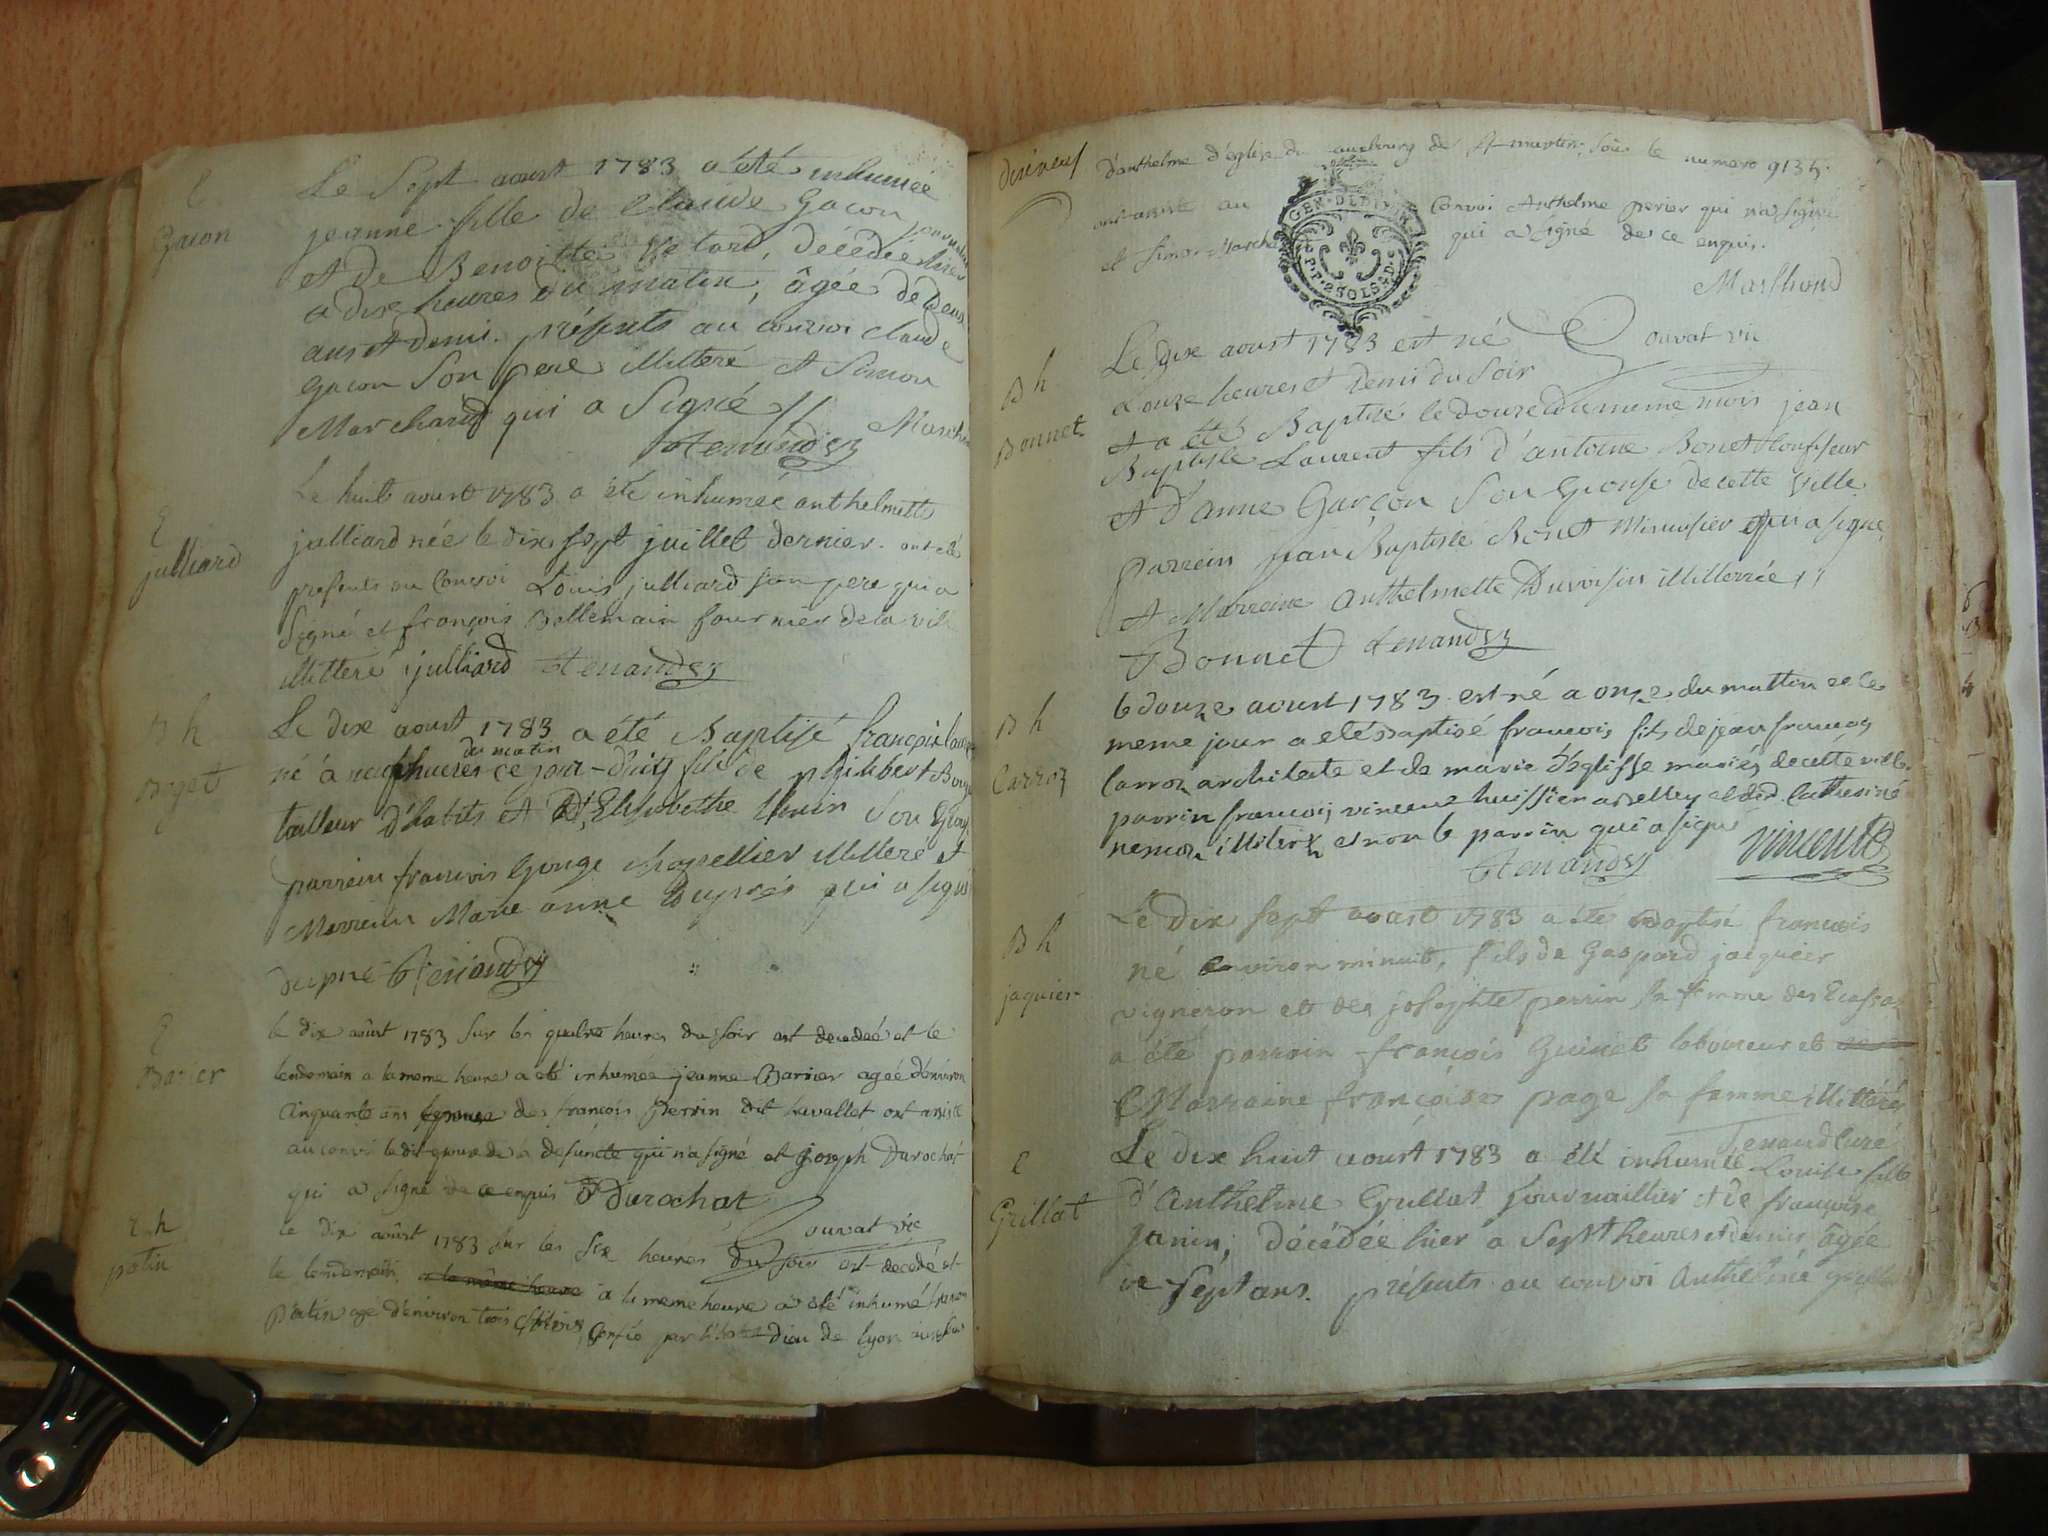 E
Gacon
Le Sept aoust 1783 a été inhumée
jeanne fille de Claude Gacon
et de Benoitte décédée hier
a dix heures du matin, âgée de deux
ans et demi. présents au convoi claude
gacon son pere illitteré et Simon
Marchand qui a Signé
E
julliard
Le huit aoust 1783 a été inhumée anthelmette
julliard née le dix sept juillet dernier. ont été
presents au Convoi Louis julliard son pere qui a
Signé et françois Bellemain fournier de la ville
illitteré julliard
B h
Le dix aoust 1783 a été Baptisé françois
du matin
né à neuf heures ce jour-d'huy fils de gilibert
tailleur d'habits et d'Elisabethe son
parrein francois Gouge chapellier illitteré et
Marreine Marie anne Dupres qui a signé
E
Barier
le dix aoûst 1783 sur les quatre heures du soir est decedeé et le
lendemain a la meme heure a eté inhumée jeanne Barier ageé d'environ
Cinquante ans epouse de françois perrin dit ont assisté
au convoi ledit epoux de la defuncte qui n'a signé et Joseph Durochat
qui a signé de ce enquis Durochat
ouvat vic
E h
patin
le dix aoûst 1783 sur les six heures du soir est decedé et
le lendemain a la même heure a la meme heure a eté inhumé
Patin age d'environ trois confié par l'hotel dieu de lyon
dixneuf
d'anthelme d'eglise du fauxbourg de St martin sous le numero 9135.
ont assisté au Convoi Anthelme perier qui n'a signé
et Simon Marchand qui a signé de ce enquis.
GEN. DE DIJON
P.P. 2 SOLS 4 D.
Marchand
ouvat vic
B h
Bonnet
Le dix aoust 1783 est né
a onze heures et demi du soir
et a été Baptisé le douze du meme mois jean
Baptiste Laurent fils d'antoine Bonet
et d'anne Garçon son Epouse de cette ville
parrein jean Baptiste Bonet Minusier qui a signé
et Marreine anthelmette Duvoisin illitterée
Bonnet
B h
Carroz
le douze aoust 1783 est né a onze du mattin et le
meme jour a eté Baptisé francois fils de jean francois
Carroz architecte et de marie d'eglisse mariés de cette ville
parrin francois vincent huissier a belley et Catherine
illiteré et non le parrin qui a signé
vincent
B h
jaquier
Le dix sept aoust 1783 a été Baptisé francois
né environ minuit, fils de Gaspard jacquier
vigneron et de josephte perrin sa femme des Ecassaz
a été parrain françois Guinet laboureur et
Marraine françoise page sa femme illitérés
E
Grillat
Le dix huit aoust 1783 a été inhumée Louise fille
d'Anthelme Grillat journaillier et de françoise
Janin, décédée hier a sept heures et demi âgée
de sept ans. présents au convoi Anthelme grillat